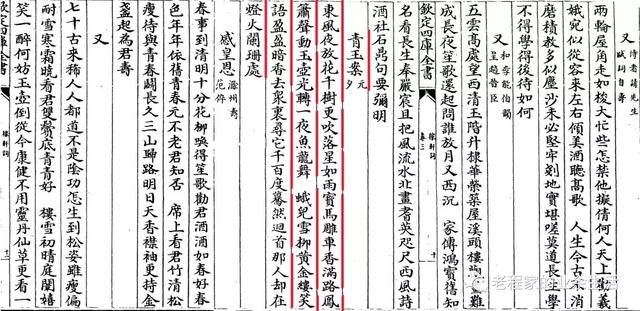 又 侍者請先生賦詞自壽
兩輪屋角走如梭大忙些怎禁他擬倩何人天上勸羲
娥何似從容來左右傾美酒聽髙歌　人生今古不消
磨積教多似塵沙未必堅牢剗地實堪嗟莫道長生學
不得學得後待如何
又 和李能伯韻呈趙晉臣
五雲高處望西清玉階升棣華榮築屋溪頭樓觀畫難
成長夜笙歌還起問誰放月又西沉　家傳鴻寶舊知
欽定四庫全書 稼軒詞 卷三 十
名看長生奉嚴宸且把風流水北畫耆英咫尺西風詩
酒社石鼎句要彌明
青玉案 元夕
東風夜放花千樹更吹落星如雨寶馬雕車香滿路鳳
簫聲動玉壺光轉一夜魚龍舞　蛾兒雪柳黃金縷笑
語盈盈暗香去衆裏尋它千百度驀然迴首那人却在
燈火闌珊處
感皇恩 滁州壽范倅
春事到清明十分花柳喚得笙歌勸君酒酒如春好春
色年年依舊青春元不老君知否　席上看君竹清松
瘦待與青春鬭長久三山歸路明日天香襟袖更持金
盞起為君壽
又
七十古來稀人人都道不是陰功怎生到松姿雖瘦偏
耐雪寒霜曉看君雙鬢底青青好　樓雪初晴庭闈嬉
笑一醉何妨玉壺倒從今康健不用靈丹仙草更看一
欽定四庫全書 稼軒詞
老程家的